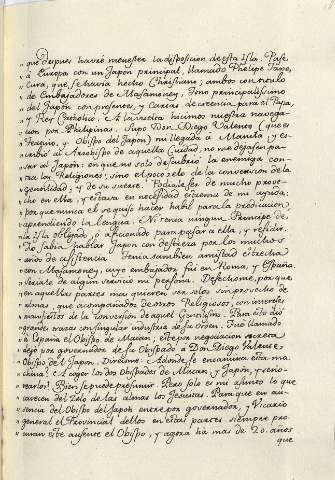 que despues havré menester la disposicion de esta Isla. Pasé
à Europa con un Japon principal, llamado Phelipe
que se havia hecho Christiano; ambos con titulo
de Embaxadores de Masamoney, Tono principalissimo
del Japon con presentes, y Cartas de creencia para el Papa,
y Rey Catholico. A la vuelta hicimos nuestra navega-
cion por Philipinas. Supo Don Diego Valente (que es
Teatino, y Obispo del Japon) mi llegada à Manila, y es-
cribió al Arzobispo de aquella Ciudad, no me dejasen pa-
sar al Japon: en que no solo descubrió la enemiga con-
tra las Religiones; sino el poco zelo de la conversion de la
gentilidad, y de su
che en ella, y estava en necesidad extrema de mi ayuda;
por que nunca el se quiso hacer habil para la predicacion,
aprendiendo la lengua. Ni tenia ningun Principe de
la Isla obligado, y aficionado para pasar a ella, y residir.
Yo sabia hablar Japon con destreza por los muchos
años de asistencia. Tenia tambien amistad estrecha
con Masamoney, cuyo embaxador fuè en Roma, y España
de algun servicio mi persona. Desechome, por que
en aquellas partes mas quieren ver solos sin provecho de
almas, que acompañados de otros Religiosos, con intereses
manifiestos de la Conversion de aquel Gentilismo. Para esto diò
grandes trazas con singular industria de su Orden. Fue llamado
a España el Obispo de Macan, este por negociacion secreta
dejó por governador de su Obispado à Don Diego Valente
Obispo del Japon. Dirélomo: Adonde se encamina esta ma-
china? A coger los dos Obispados de Macan, y Japon, y seño-
rearlos? Bien se puede presumir. Pero solo es mi asunto lo que
carecen del zelo de las almas los Jesuitas. Para que en au-
sencia del Obispo del Japon entre por governador, y Vicario
general el Provincial dellos en estas partes siempre pro-
curan este ausente el Obispo, y agora ha mas de 20. años
que